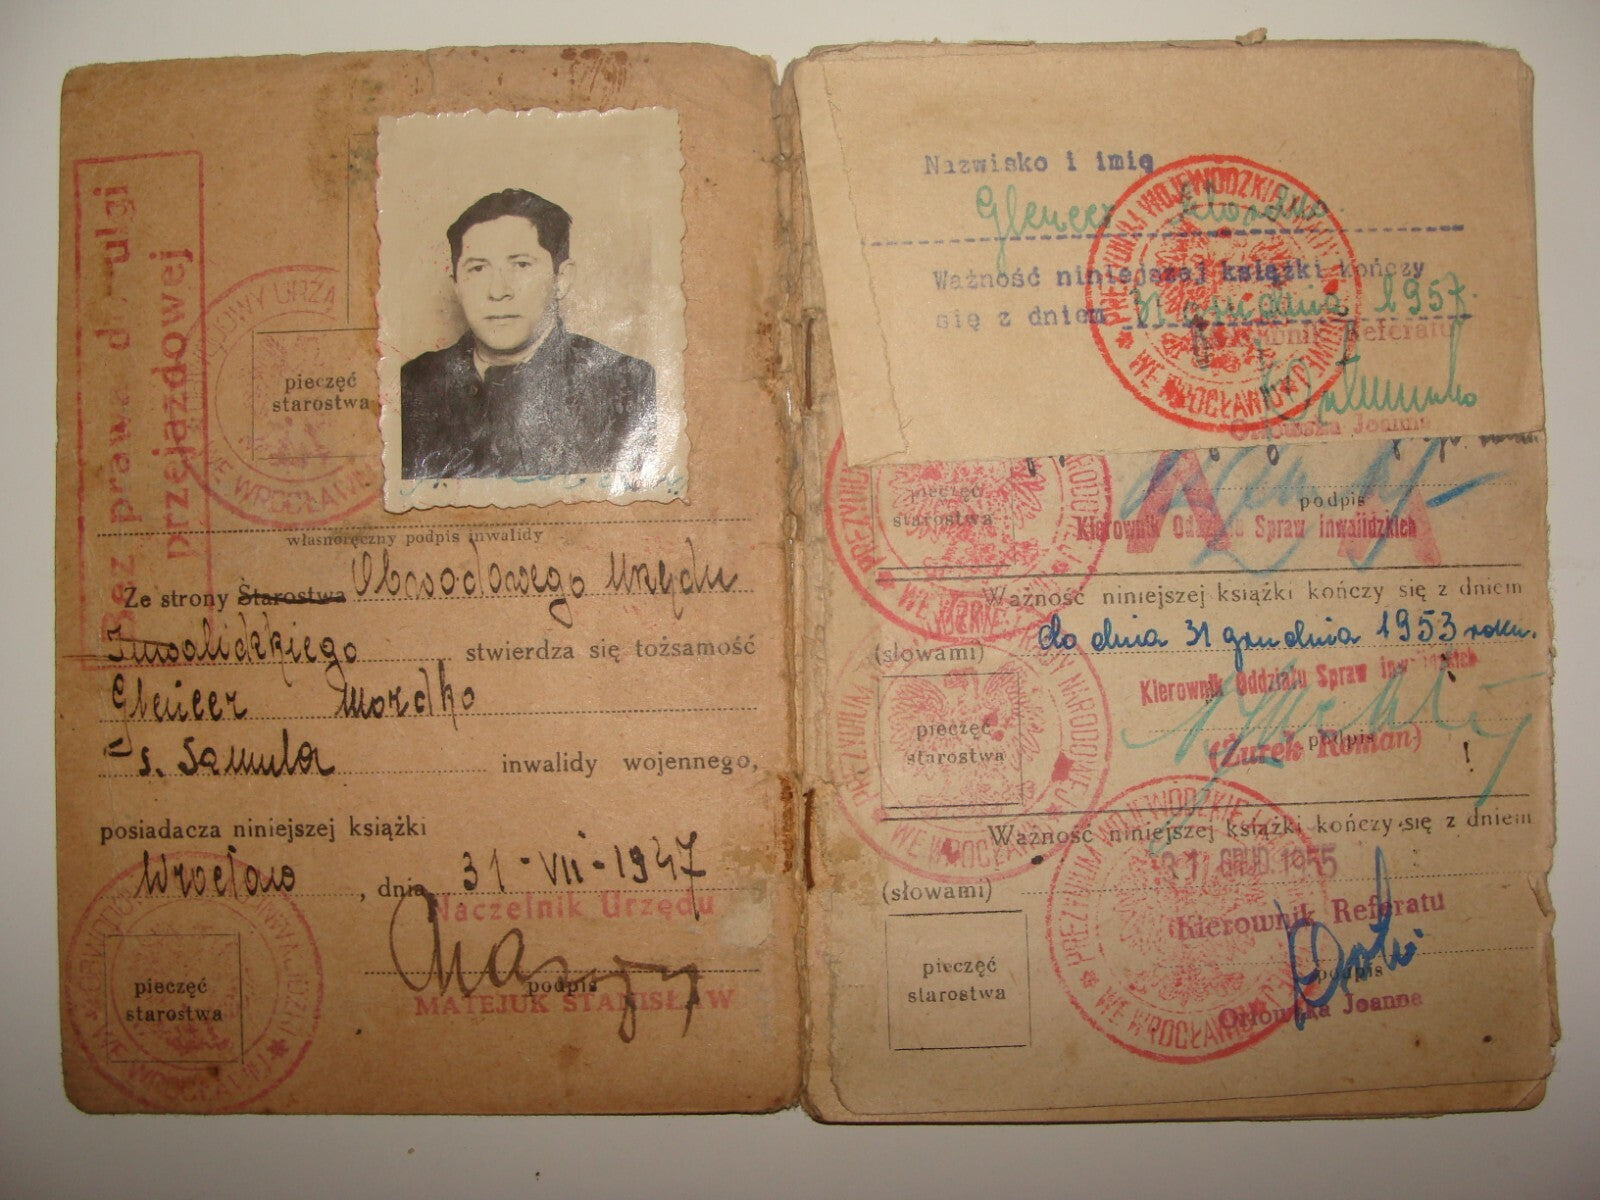 Bez prawa do ulgi
przejazdowej
WE WROCŁAWIU
pieczęć
starostwa
własnoręczny podpis inwalidy
Ze strony Starostwa Obwodowego Urzędu
Inwalidzkiego stwierdza się tożsamość
Glencer Mordko
s. Samula inwalidy wojennego,
posiadacza niniejszej książki
Wrocław, dnia 31-VII-1947
Naczelnik Urzędu
podpis
MATEJUK STANISŁAW
pieczęć
starostwa
Nazwisko i imię
Glencer Mordko
Ważność niniejszej książki kończy
się z dniem 31 grudnia 1957.
Kierownik Referatu
Orłowska Joanna
PREZYDIUM WOJEWÓDZKIEJ RADY NARODOWEJ
WE WROCŁAWIU
pieczęć
starostwa
podpis
Kierownik Oddziału Spraw Inwalidzkich
Ważność niniejszej książki kończy się z dniem
(słowami) do dnia 31 grudnia 1953 roku.
Kierownik Oddziału Spraw inwalidzkich
podpis
(Żurek Roman)
pieczęć
starostwa
Ważność niniejszej książki kończy się z dniem
31 GRUD. 1955
(słowami)
Kierownik Referatu
podpis
Orłowska Joanna
pieczęć
starostwa
PREZYDIUM WOJEWÓDZKIEJ RADY NARODOWEJ
WE WROCŁAWIU